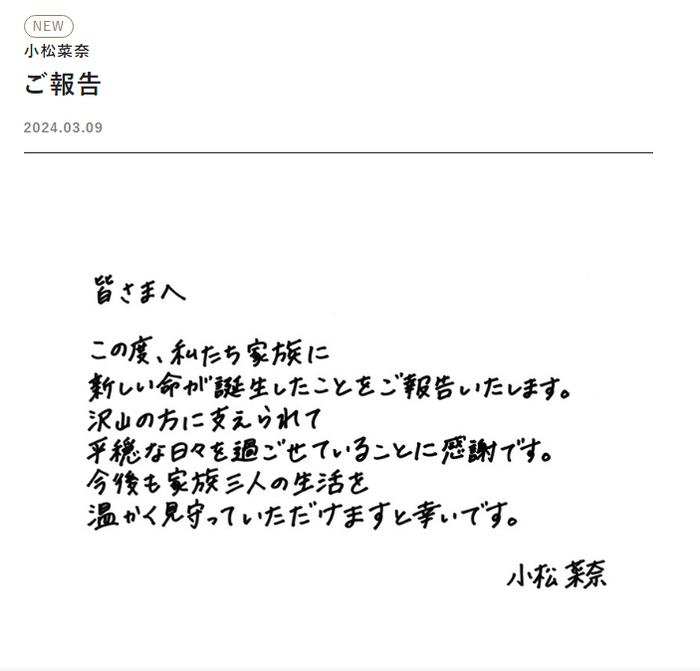 NEW
小松菜奈
ご報告
2024.03.09
皆さまへ
この度、私たち家族に
新しい命が誕生したことをご報告いたします。
沢山の方に支えられて
平穏な日々を過ごせていることに感謝です。
今後も家族三人の生活を
温かく見守っていただけますと幸いです。
小松菜奈